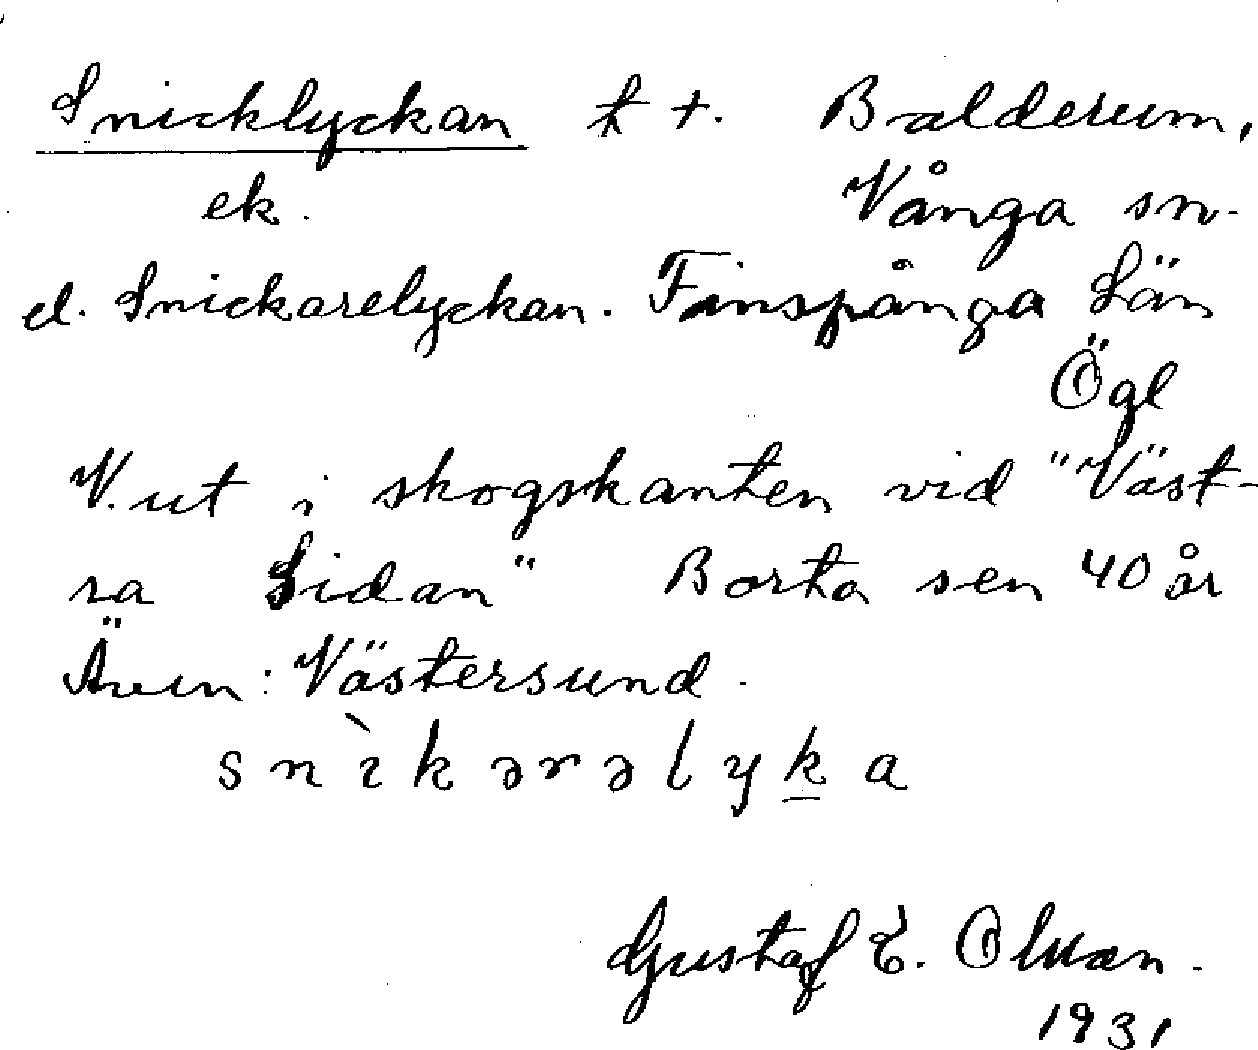 Snicklyckan t +. Balderum,
ek. Vånga sn.
el. Snickarelyckan. Finspånga Län
Ögl
V. ut i skogskanten vid "Väst-
ra Sidan" Borta sen 40 år
Även: Västersund.
snìkərəlyka
Gustaf E. Olman.
1931